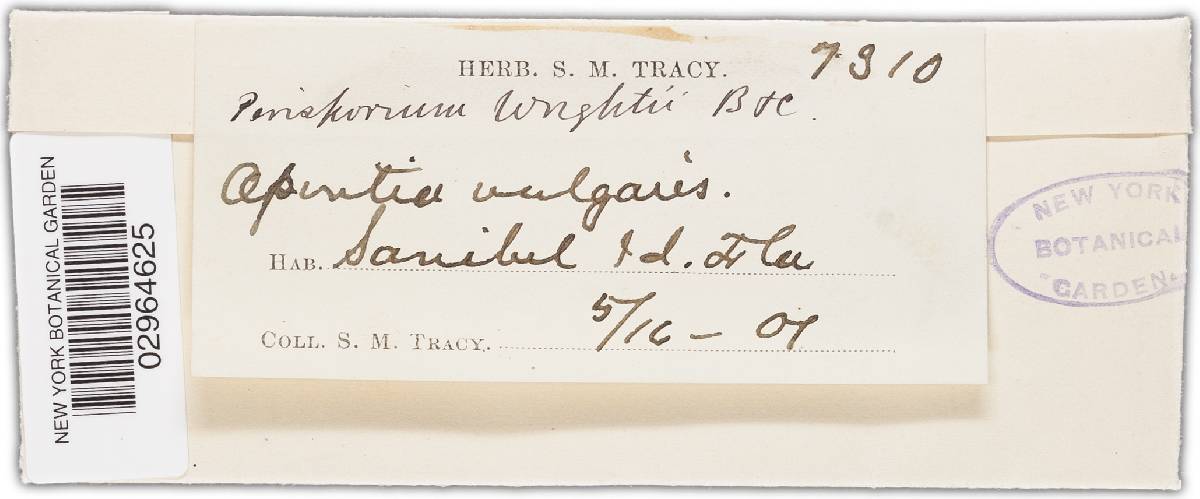 HERB. S. M. TRACY. 7310
Perisporium Wrightii B & C.
Opuntia vulgaris.
HAB. Sanibel Id. Fla
COLL. S. M. TRACY. 5/16 - 01
NEW YORK BOTANICAL GARDEN
02964625
NEW YORK
BOTANICAL
GARDEN